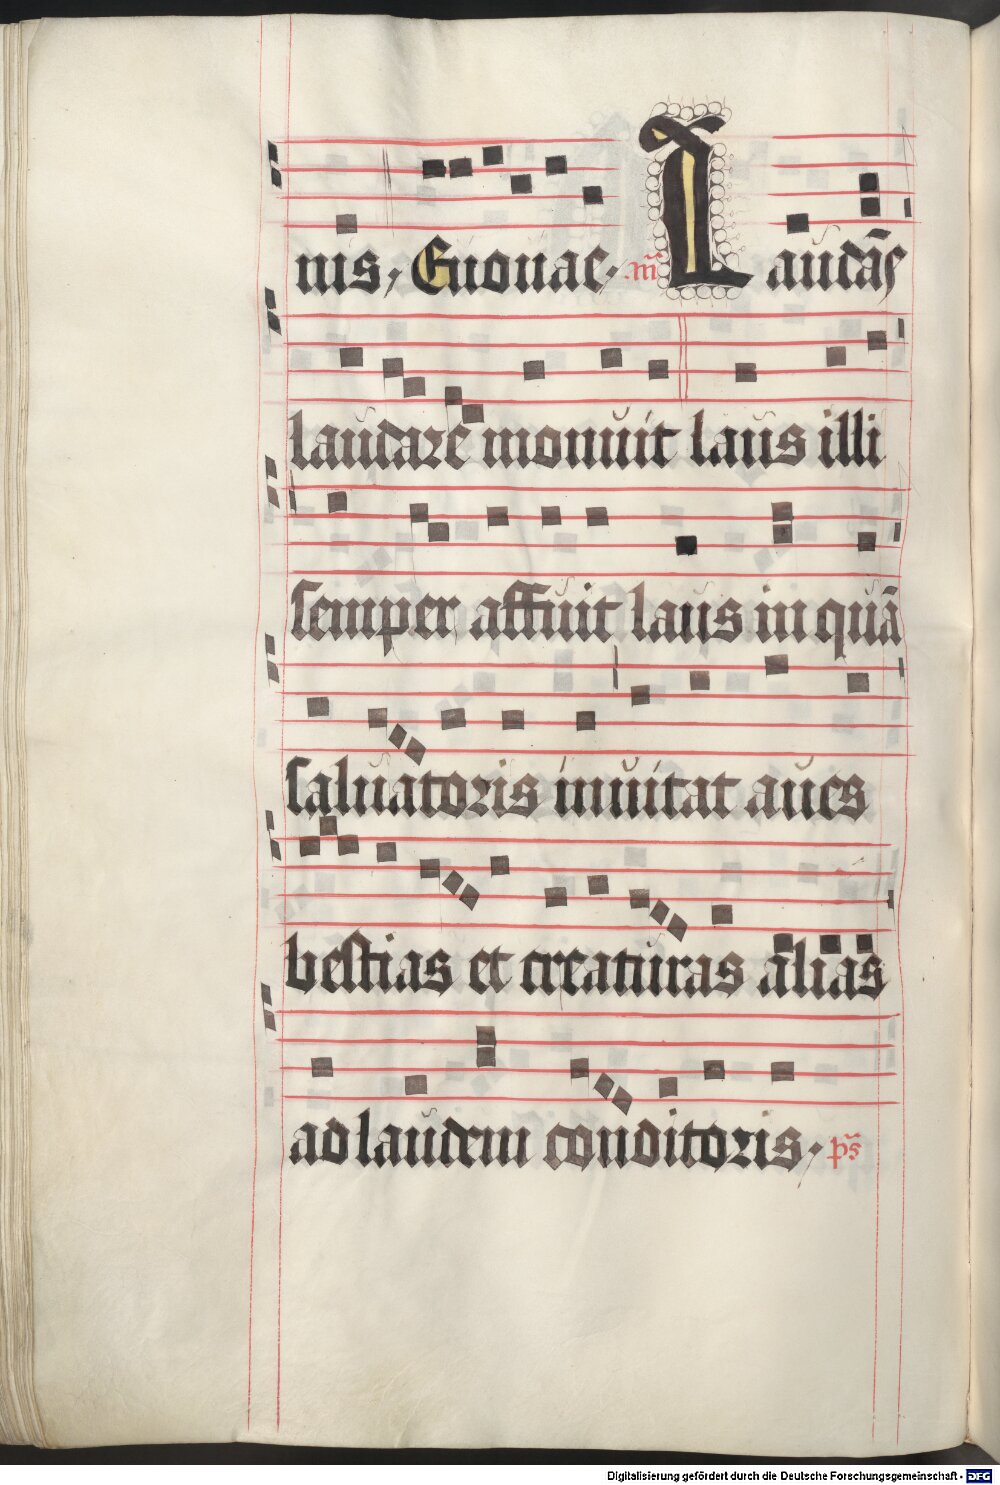 nis, Euouae. m̄ Laudās
laudare monuit laus illi
semper affuit laus in quā
saluatoris inuitat aues
bestias et creaturas alias
ad laudem conditoris. p̄s
Digitalisierung gefördert durch die Deutsche Forschungsgemeinschaft - DFG